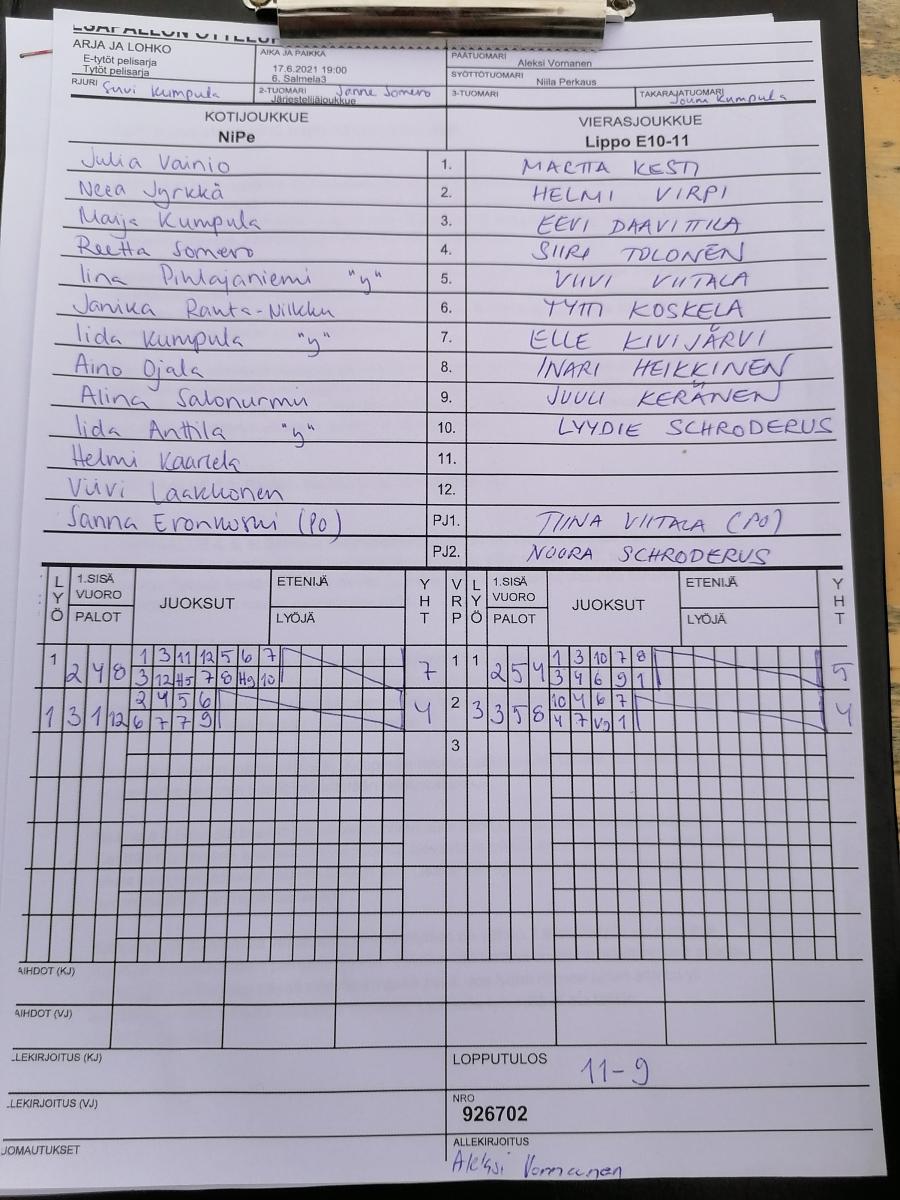 ARJA JA LOHKO
E-tytöt pelisarja
Tytöt pelisarja
AIKA JA PAIKKA
17.6.2021 19:00
6. Salmela3
PÄÄTUOMARI Aleksi Vornanen
SYÖTTÖTUOMARI Niila Perkaus
RJURI Suvi Kumpula
2-TUOMARI Janne Somero
Järjestelijäjoukkue
3-TUOMARI
TAKARAJATUOMARI Jouni Kumpula
KOTIJOUKKUE
NiPe
VIERASJOUKKUE
Lippo E10-11
Julia Vainio 1. MARTTA KESTI
Neea Jyrkkä 2. HELMI VIRPI
Maija Kumpula 3. EEVI DAAVITTILA
Reetta Somero 4. SIIRI TOLONEN
Iina Pihlajaniemi "y" 5. VIIVI VIITALA
Janika Ranta-Nilkku 6. TYTTI KOSKELA
Iida Kumpula "y" 7. ELLE KIVIJÄRVI
Aino Ojala 8. INARI HEIKKINEN
Alina Salonurmi 9. JUULI KERÄNEN
Iida Anttila "y" 10. LYYDIE SCHRODERUS
Helmi Kaartela 11.
Viivi Laakkonen 12.
Sanna Eronkoski (PO) PJ1. TIINA VIITALA (PO)
PJ2. NOORA SCHRODERUS
LYÖ 1.SISÄ VUORO PALOT JUOKSUT ETENIJÄ LYÖJÄ YHT VRP LYÖ 1.SISÄ VUORO PALOT JUOKSUT ETENIJÄ LYÖJÄ YHT
1 2 4 8 1 3 11 12 5 6 7 7 1 1 2 5 4 1 3 10 7 8 5
3 12 H5 7 8 H9 10 3 4 6 9 1
1 3 1 12 2 4 5 6 4 2 3 3 5 8 10 4 6 7 4
6 7 7 9 4 7 V2 1
3
AIHDOT (KJ)
AIHDOT (VJ)
LLEKIRJOITUS (KJ)
LOPPUTULOS 11-9
LLEKIRJOITUS (VJ)
NRO
926702
JOMAUTUKSET
ALLEKIRJOITUS
Aleksi Vornanen